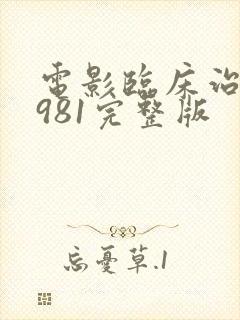 電影臨床治
981完整版
忘憂草.1